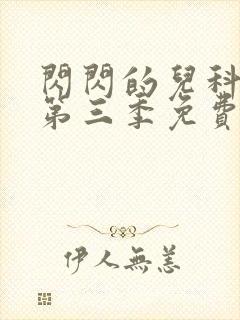 閃閃的兒科
第三季免費
伊人無恙